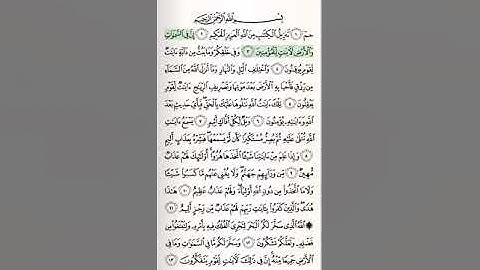 بِسْمِ اللَّهِ الرَّحْمَٰنِ الرَّحِيمِ
حمٓ ١ تَنزِيلُ الْكِتَابِ مِنَ اللَّهِ الْعَزِيزِ الْحَكِيمِ ٢ إِنَّ فِي السَّمَاوَاتِ
وَالْأَرْضِ لَآيَاتٍ لِّلْمُؤْمِنِينَ ٣ وَفِي خَلْقِكُمْ وَمَا يَبُثُّ مِن دَابَّةٍ آيَاتٌ
لِّقَوْمٍ يُوقِنُونَ ٤ وَاخْتِلَافِ اللَّيْلِ وَالنَّهَارِ وَمَا أَنزَلَ اللَّهُ مِنَ السَّمَاءِ
مِن رِّزْقٍ فَأَحْيَا بِهِ الْأَرْضَ بَعْدَ مَوْتِهَا وَتَصْرِيفِ الرِّيَاحِ آيَاتٌ لِّقَوْمٍ
يَعْقِلُونَ ٥ تِلْكَ آيَاتُ اللَّهِ نَتْلُوهَا عَلَيْكَ بِالْحَقِّ فَبِأَيِّ حَدِيثٍ بَعْدَ
اللَّهِ وَآيَاتِهِ يُؤْمِنُونَ ٦ وَيْلٌ لِّكُلِّ أَفَّاكٍ أَثِيمٍ ٧ يَسْمَعُ آيَاتِ
اللَّهِ تُتْلَىٰ عَلَيْهِ ثُمَّ يُصِرُّ مُسْتَكْبِرًا كَأَن لَّمْ يَسْمَعْهَا فَبَشِّرْهُ بِعَذَابٍ أَلِيمٍ
٨ وَإِذَا عَلِمَ مِنْ آيَاتِنَا شَيْئًا اتَّخَذَهَا هُزُوًا أُولَٰئِكَ لَهُمْ عَذَابٌ
مُّهِينٌ ٩ مِّن وَرَائِهِمْ جَهَنَّمُ وَلَا يُغْنِي عَنْهُم مَّا كَسَبُوا شَيْئًا
وَلَا مَا اتَّخَذُوا مِن دُونِ اللَّهِ أَوْلِيَاءَ وَلَهُمْ عَذَابٌ عَظِيمٌ ١٠ هَٰذَا
هُدًى وَالَّذِينَ كَفَرُوا بِآيَاتِ رَبِّهِمْ لَهُمْ عَذَابٌ مِّن رِّجْزٍ أَلِيمٌ ١١
اللَّهُ الَّذِي سَخَّرَ لَكُمُ الْبَحْرَ لِتَجْرِيَ الْفُلْكُ فِيهِ بِأَمْرِهِ وَلِتَبْتَغُوا مِن
فَضْلِهِ وَلَعَلَّكُمْ تَشْكُرُونَ ١٢ وَسَخَّرَ لَكُم مَّا فِي السَّمَاوَاتِ وَمَا فِي
الْأَرْضِ جَمِيعًا مِّنْهُ إِنَّ فِي ذَٰلِكَ لَآيَاتٍ لِّقَوْمٍ يَتَفَكَّرُونَ ١٣